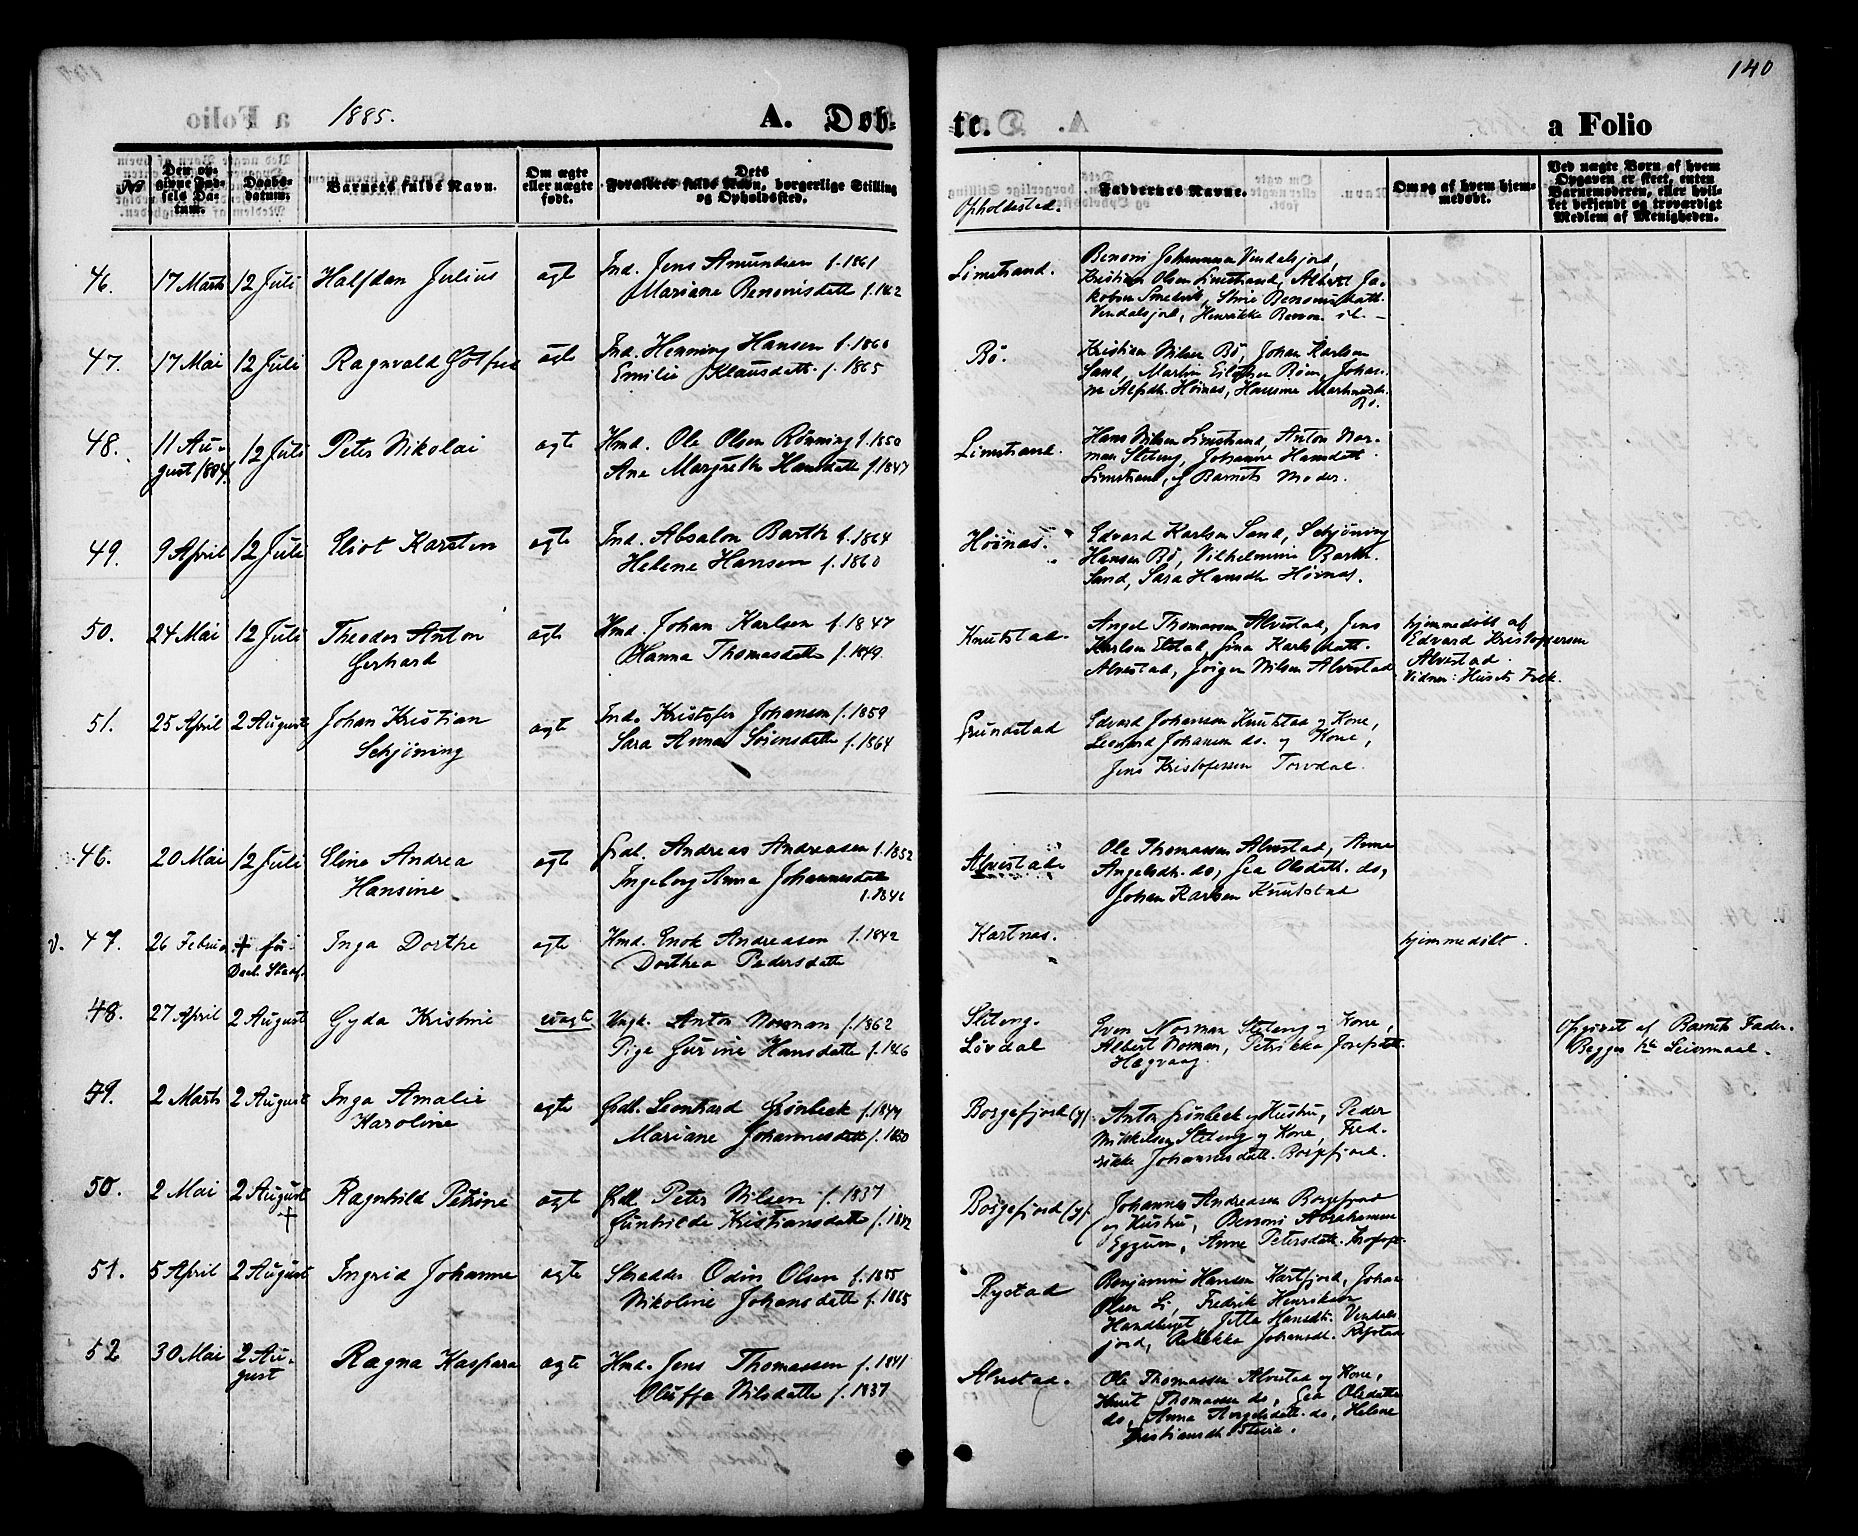 140
a Folio 1885. A. Døb- te. a Folio
No
Den opgivne Fødsels Datum.
Daabsdatum.
Barnets fulde Navn.
Om ægte eller uægte født.
Dets Forældres fulde Navn, borgerlige Stilling og Opholdssted.
Opholdssted.
Faddernes Navne.
Om og af hvem hjemmedøbt.
Ved uægte Børn af hvem Opgaven er skeet, enten Barnemoderen, eller hvilket bekjendt og troværdigt Medlem af Menigheden.
46. 17 Marts 12 Juli Halfdan Julius ægte Ind. Jens Amundsen f. 1861
Mariane Benonisdatt f. 1862
Limstrand.
Benoni Johannesen Vendalsjord,
Kristian Olsen Limstrand, Albert Ja-
kobsen Smedvik, Stine Benonisdatt.
Vendalsjord, Henrikke Benon
47. 17 Mai 12 Juli Ragnvald Gotfred ægte Ind. Henning Hansen f. 1860
Emilie Klausdatt. f. 1865
Bø.
Kristian Nilsen Bø, Johan Karlsen
Sand, Martin Eilertsen Bøen, Johan-
ne Alfsdtr. Høinæs, Hansine Martinusdtr.
Bø.
48. 11 Au- 12 Juli Peter Nikolai ægte Hmd. Ole Olsen Rønning f. 1850
gust 1884. Ane Margrethe Hansdatt f. 1847
Limstrand.
Hans Nilsen Limstrand, Anton Nor-
man Steteng, Johanne Hansdatt.
Limstrand, og Barnets Moder.
49. 9 April 12 Juli Eliot Karsten ægte Ind. Absalon Barth f. 1864
Helene Hansen f. 1860
Høinæs.
Edvard Karlsen Sand, Schjøning
Hansen Bø, Vilhelmine Barth
Sand, Sara Hansdtr Høinæs.
50. 24 Mai 12 Juli Theodor Anton ægte Hmd. Johan Karlsen f. 1847
Gerhard Hanna Thomasdatt f. 1849.
Knutstad.
Angel Thomassen Alvestad, Jens
Karlsen Elstad, Gina Karlsdatt.
Alvestad, Jørgen Nilsen Alvestad
hjemmedøbt af
Edvard Kristoffersen
Alvestad.
Vidner: Husets Folk.
51. 25 April 2 August Johan Kristian ægte Ind. Kristofer Johansen f. 1859
Schjøning Sara Anna Sørensdatt f. 1864
Grundstad
Edvard Johansen Knutstad og Kone,
Leonard Johansen do. og Kone,
Jens Kristofersen Torvdal.
46. 20 Mai 12 Juli Eline Andrea ægte Grdb. Andreas Andreasen f. 1852
Hansine Ingeborg Anna Johannesdatt
f. 1846
Alvestad.
Ole Thomassen Alvestad, Anne
Angelsdtr. do, Gea Olsdatt. do,
Johan Karlsen Knutstad
v. 47. 26 Februar + før Inga Dorthe ægte Hmd. Enok Andreasen f. 1842
Dorthea Pedersdatt
Kartnæs.
hjemmedøbt.
48. 27 April 2 August Gyda Kristine uægte Ungk. Anton Norman f. 1862
Pige Gurine Hansdatt f. 1861
Steteng.
Løvdal
Even Norman Steteng og Kone,
Albert Norman, Petrikke Josefsdatt.
Hagvaag.
Opgivet af Barnets Fader.
Begges 1ste Leiermaal.
49. 2 Marts 2 August Inga Amalie ægte Grdb. Leonhard Grønbeck f. 1847
Karoline Mariane Johannesdatt f. 1850
Borgefjord (y).
Anton Grønbeck og Hustru, Peder
Mikkelsen Steteng og Kone, Fred-
rikke Johannesdatt. Borgefjord.
50. 2 Mai 2 August Ragnhild Petrine ægte Grdb. Peter Nilsen f. 1837
+ Gunhilde Kristiansdatt f. 1842
Borgefjord (y).
Johannes Andreasen Borgefjord
og Hustru, Benoni Abrahamsen
Eggum, Anne Petersdatt.
51. 5 April 2 August Ingrid Johanne ægte Skrædder Odin Olsen f. 1855
Nikoline Johansdatt f. 1865
Rystad
Benjamin Hansen Kartfjord, Johan
Olsen Li, Fredrik Henriksen
Handberget, Jetta Hansdtr. Vendals-
jord, Rebekka Johansdtr. Rystad
52 30 Mai 2 Au- Ragna Kaspara ægte Hmd. Jens Thomassen f. 1841
gust Oluffa Nilsdatt f. 1837
Alvestad.
Ole Thomassen Alvestad og Kone,
Knut Thomassen do, Gea Olsdatt
do, Anna Angelsdatt. do, Helene
Kristiansdtr